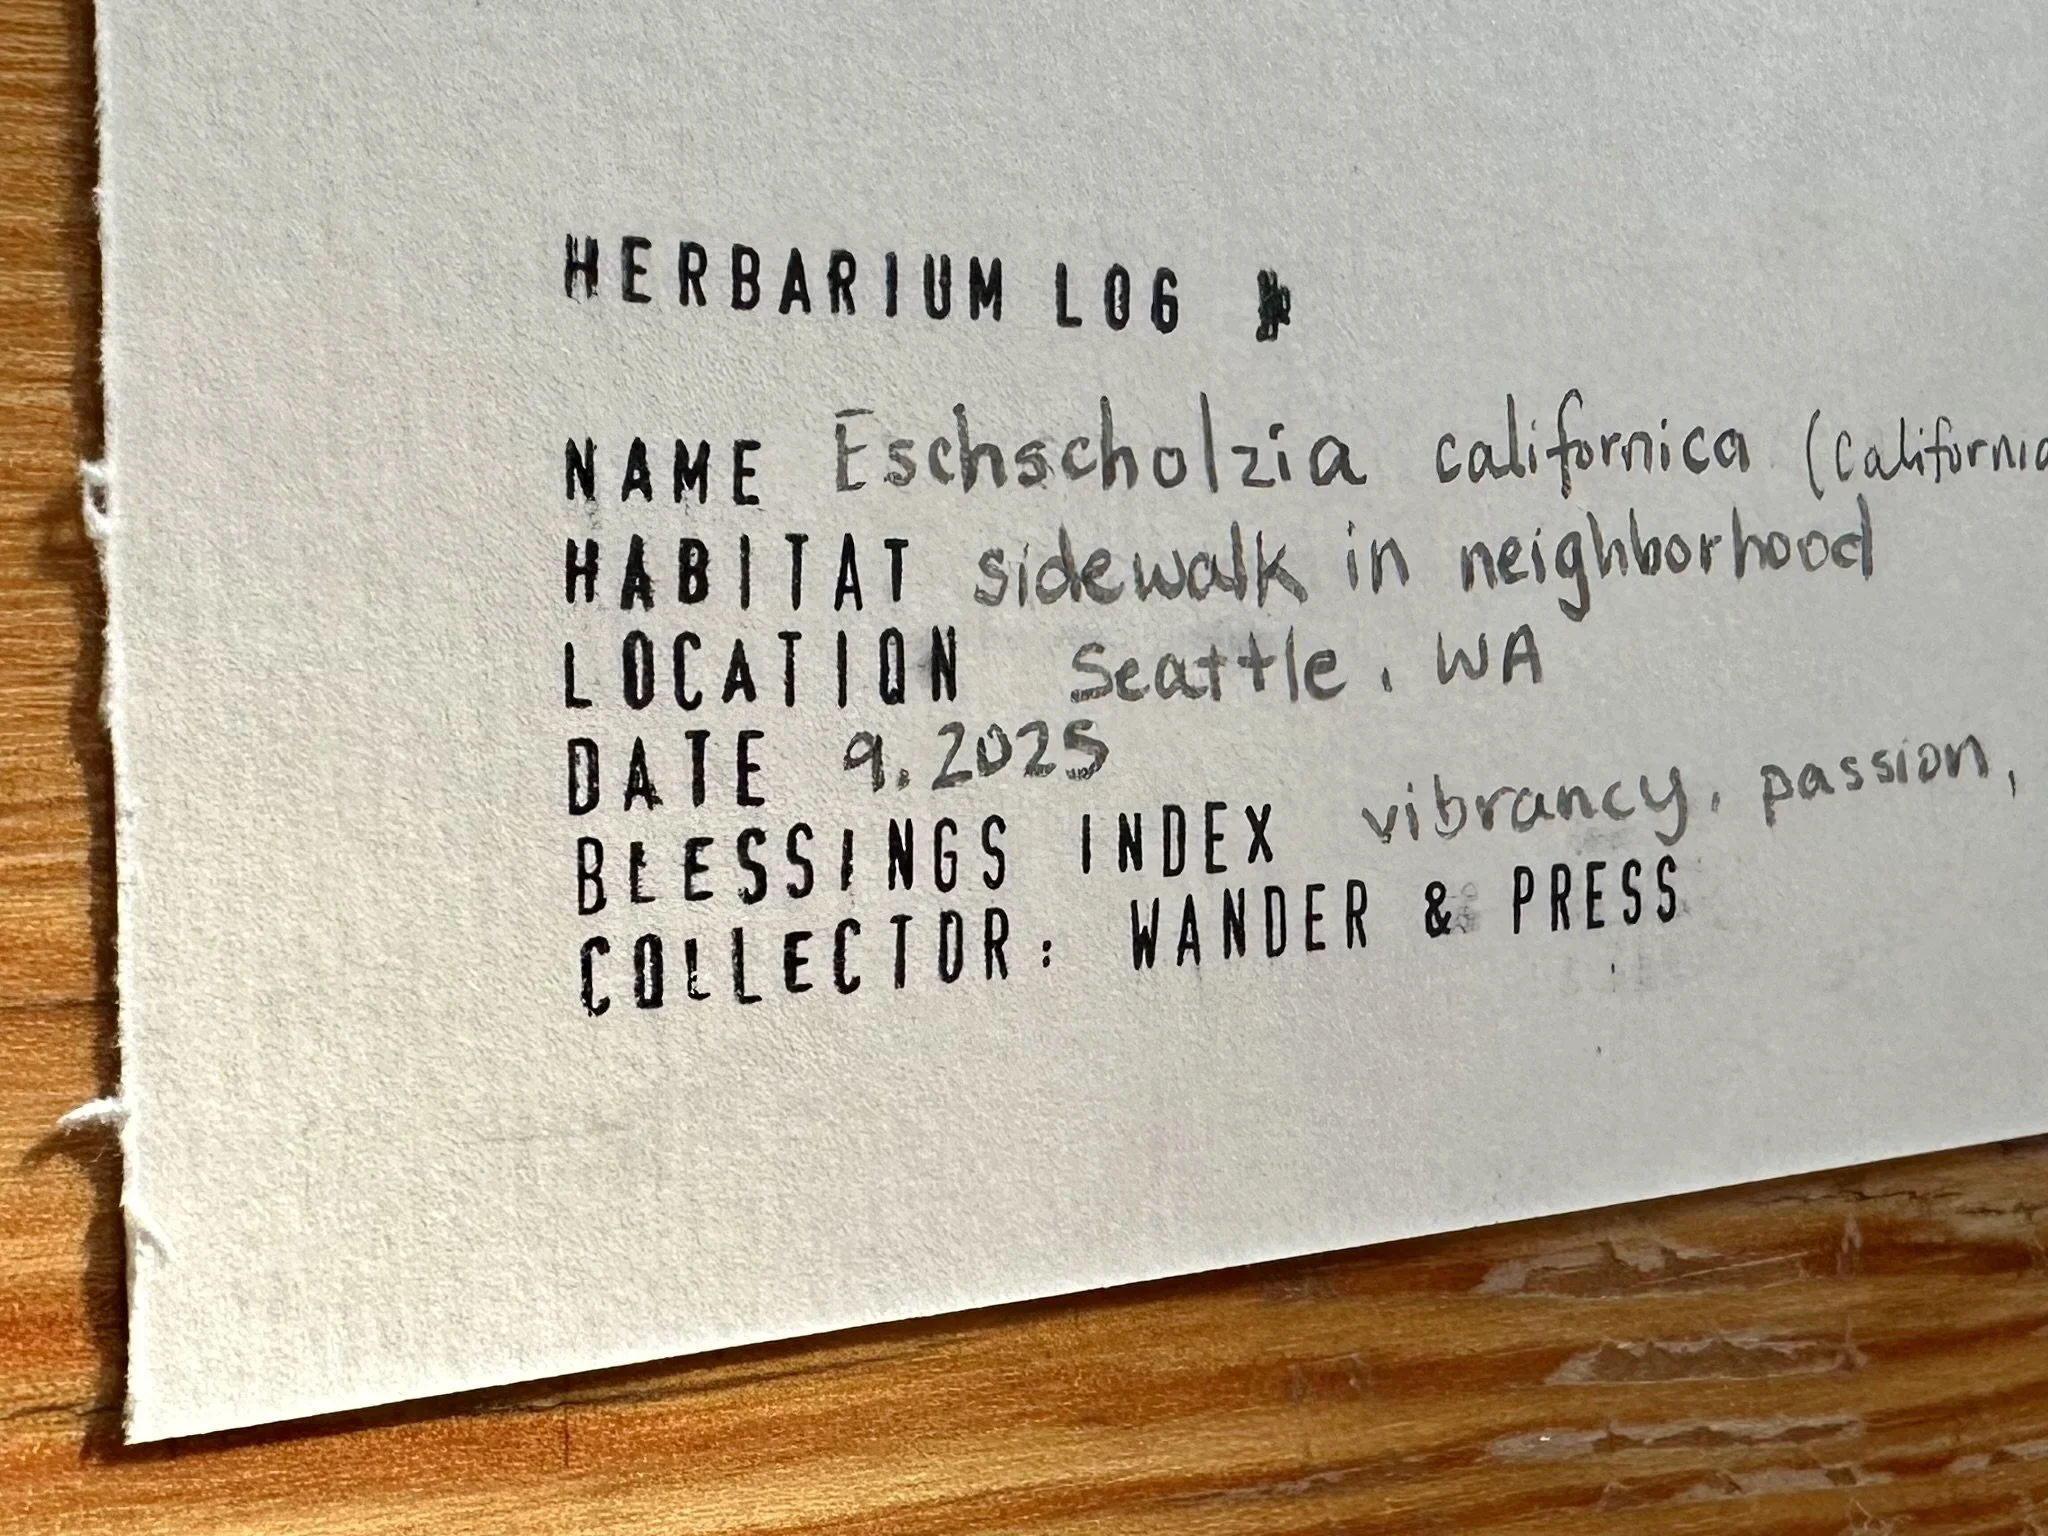 HERBARIUM LOG
NAME Eschscholzia californica (California
HABITAT sidewalk in neighborhood
LOCATION Seattle, WA
DATE 9.2025
BLESSINGS INDEX vibrancy, passion,
COLLECTOR: WANDER & PRESS